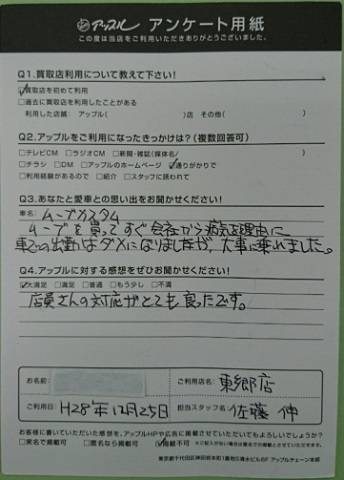 アップル アンケート用紙
この度は当店をご利用いただきありがとうございました。
Q1.買取店利用について教えて下さい!
☑買取店を初めて利用
□過去に買取店を利用したことがある
利用した店舗: アップル( )店 その他( )
Q2.アップルをご利用になったきっかけは?(複数回答可)
□テレビCM □ラジオCM □新聞・雑誌(媒体名/ )
□チラシ □DM □アップルのホームページ ☑通りがかりで
□利用経験があるので □紹介 □スタッフに誘われて
Q3.あなたと愛車との思い出をお聞かせください!
車名: ムーブカスタム
ムーブを買ってすぐ会社から病気を理由に
車での出勤はダメになりましたが、大事に乗れました。
Q4.アップルに対する感想をぜひお聞かせください!
☑大満足 □満足 □普通 □もう少し □不満
店員さんの対応がとても良ったです。
お名前:
ご利用店名: 東郷店
ご利用日: H28年12月25日
担当スタッフ名: 佐藤 伸
お客様に書いていただいた感想を、アップルHPや広告に掲載させていただいてもよろしいでしょうか?
□実名で掲載可 □匿名なら掲載可 ☑掲載不可 ※ご記入がない場合は掲載可とさせていただきます。
東京都千代田区神田岩本町1番地5清水ビル6F アップルチェーン本部